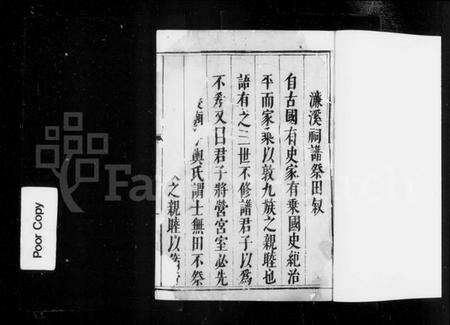 濂溪祠譜祭田叙
自古國有史家有乗國史紀治
平而家乗以敦九族之親睦也
語有之三世不修譜君子以為
不孝又曰君子將營宮室必先
輿氏謂士無田不祭
之親睦以
Poor Copy